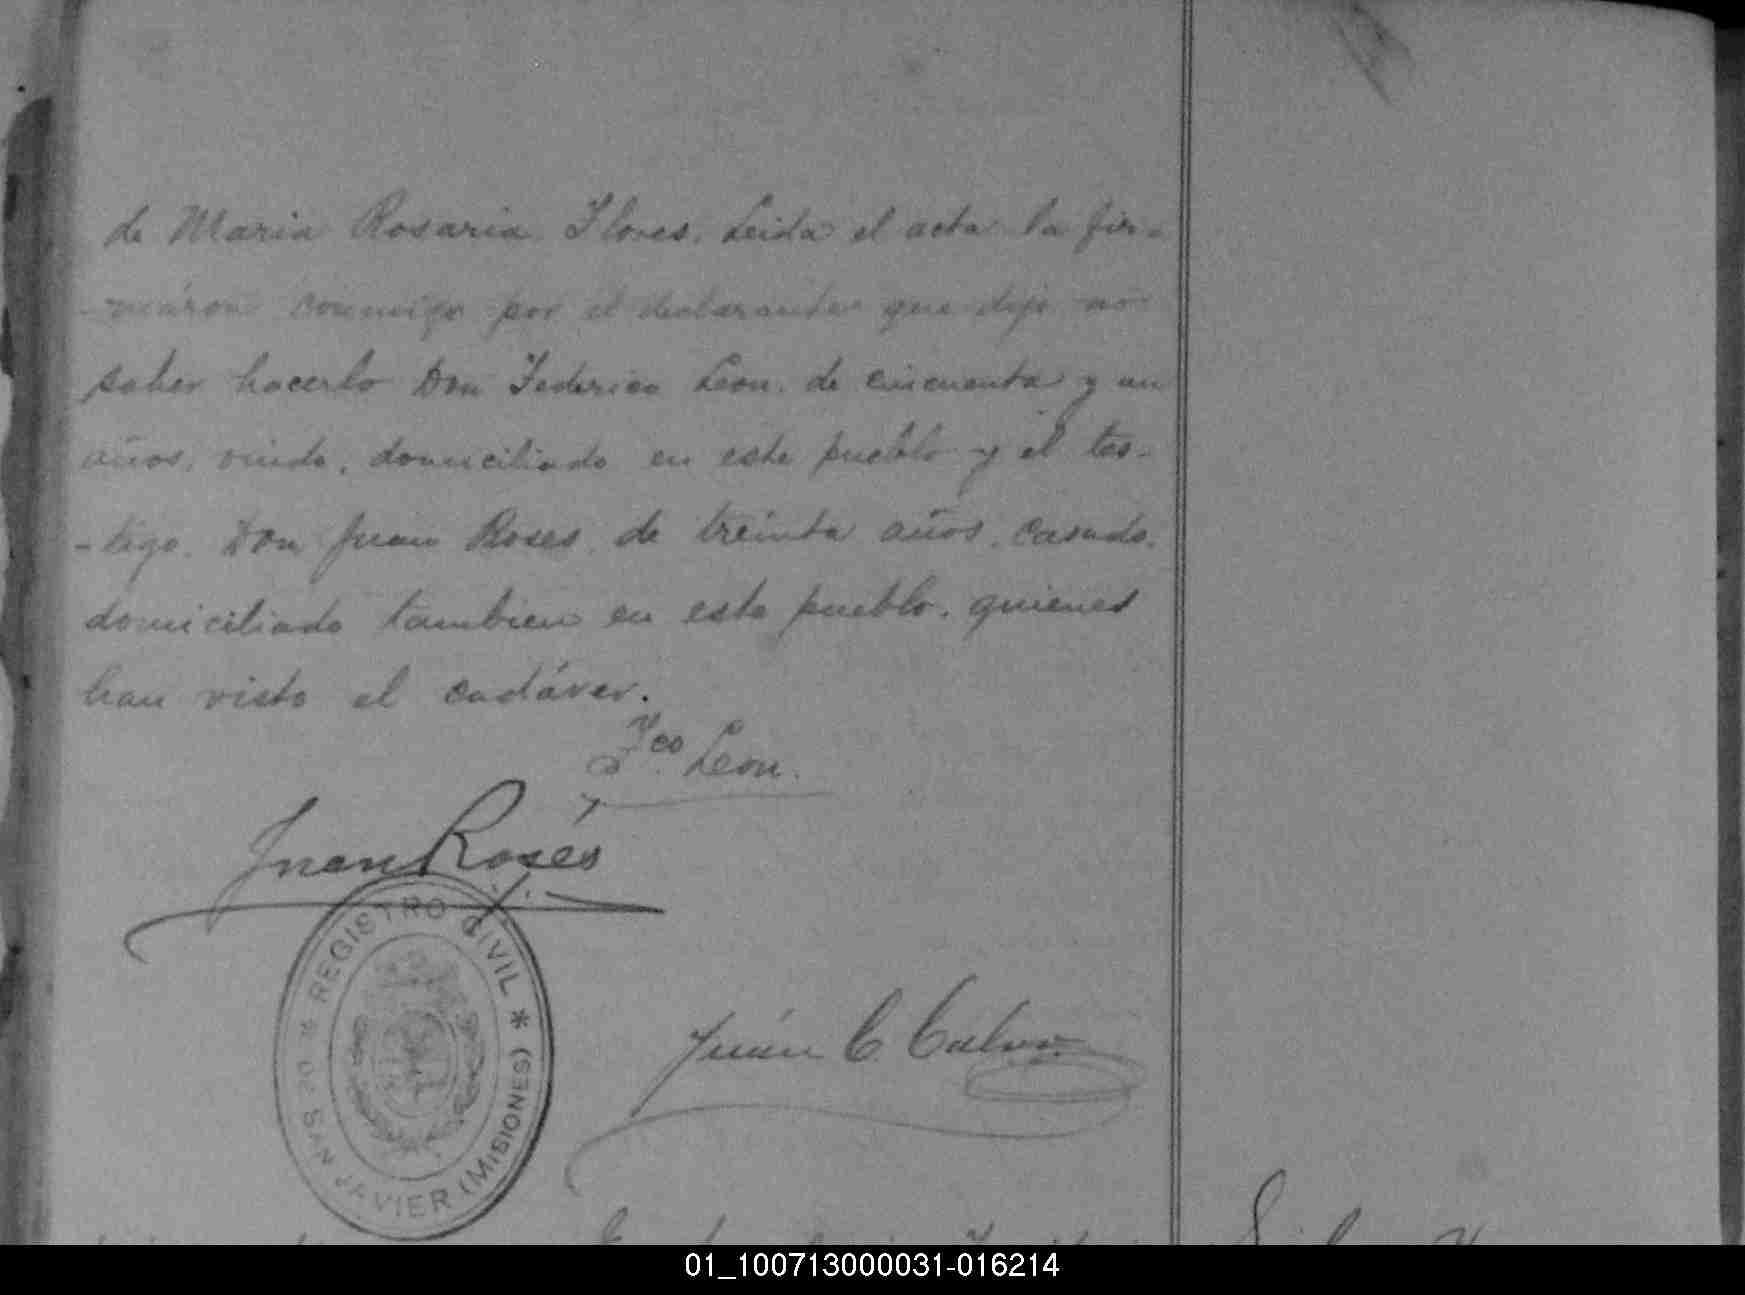 de Maria Rosaria Flores. Leida el acta la fir-
-máron conmigo por el declarante que dijo no
saber hacerlo Don Federico Leon. de cincuenta y un
años, viudo, domiciliado en este pueblo y el tes-
-tigo. Don Juan Roses. de treinta años. casado.
domiciliado tambien en este pueblo. quienes
han visto el cadáver.
Fco Leon.
Juan Rosés
REGISTRO CIVIL *
SAN JAVIER (MISIONES)
Juán C Calvo
01_100713000031-016214